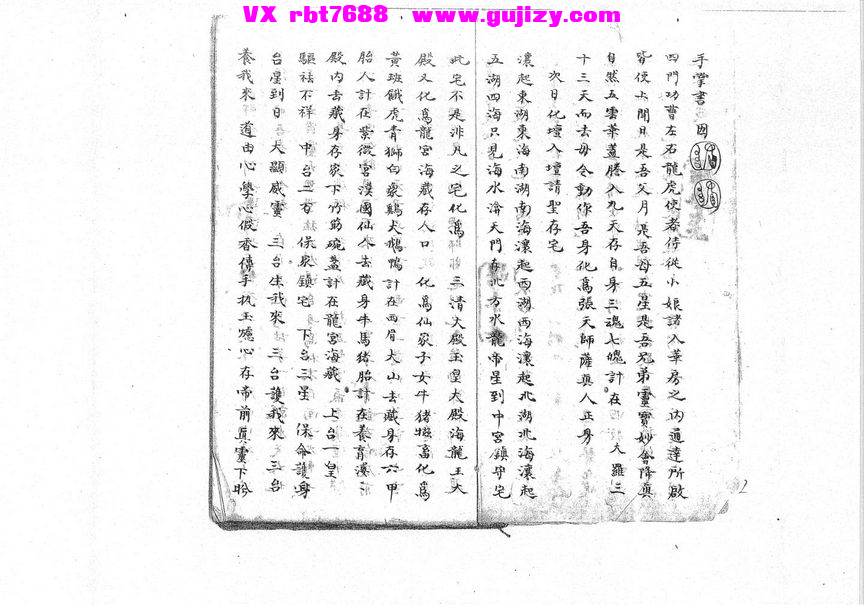 VX rbt7688 www.gujizy.com
手掌書 図
四門功曹左右龍虎使者侍從小娘諸入華房之內通達所啟
皆使上聞日是吾父月是吾母五星是吾兄弟靈寶妙會降真
自然五雲華蓋騰入九天存自身三魂七魄計在 大羅三
十三天而去毋令動作吾身化為張天師薩真人正身
次日化壇入壇請聖存宅
瀼起東湖東海南湖南海瀼起西湖西海瀼起北湖北海瀼起
五湖四海只見海水淪天門存北方水龍帝星到中宮鎮守宅
此宅不是非凡之宅化為 三清大殿玉皇大殿海龍王大
殿又化為龍宮海藏存人口 化為仙家子女牛猪牲畜化為
黃班餓虎青獅白象鷄犬鵝鴨計在西眉大山去藏身存六甲
胎人計在紫微宮漢國仙人去藏身牛馬猪胎計在養育
殿內去藏身存家下竹碗蓋計在龍宮海藏 上台一皇
驅祛不祥 中台二方 保家鎮宅 下台三星 保命護身
台星到日 大顯威靈 三台生我來 三台護我來 三台
養我來 道由心學心假香傳手执玉 心存帝前真靈下盻
2